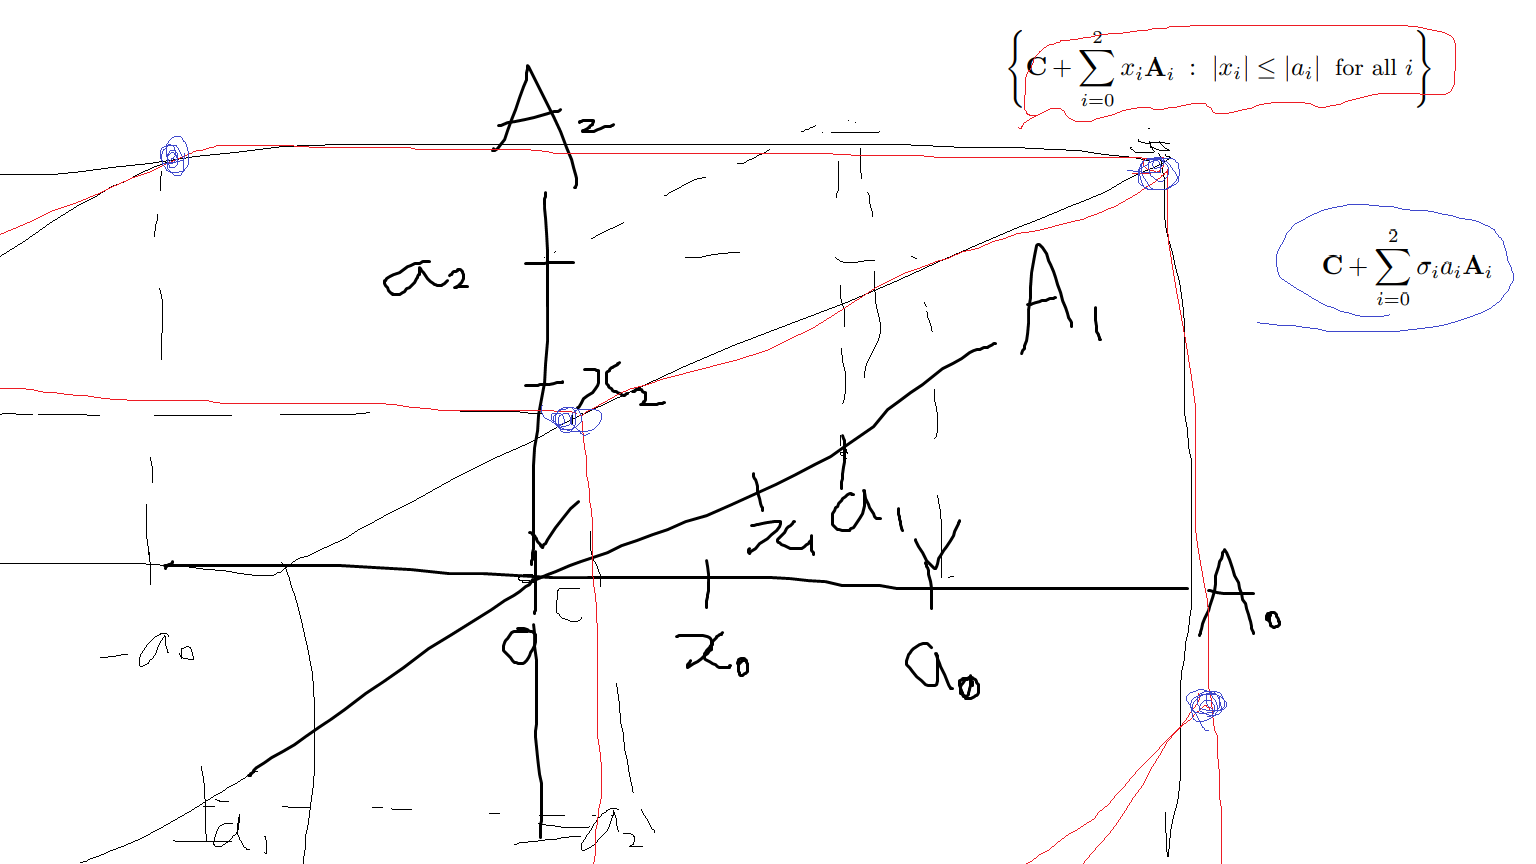 {C + ∑_{i=0}^{2} x_i A_i : |x_i| ≤ |a_i| for all i}
A₂
C + ∑_{i=0}^{2} σ_i a_i A_i
a₂
A₁
x₂
a₁
x₁
C
A₀
0
x₀
a₀
-a₀
-a₁
-a₂